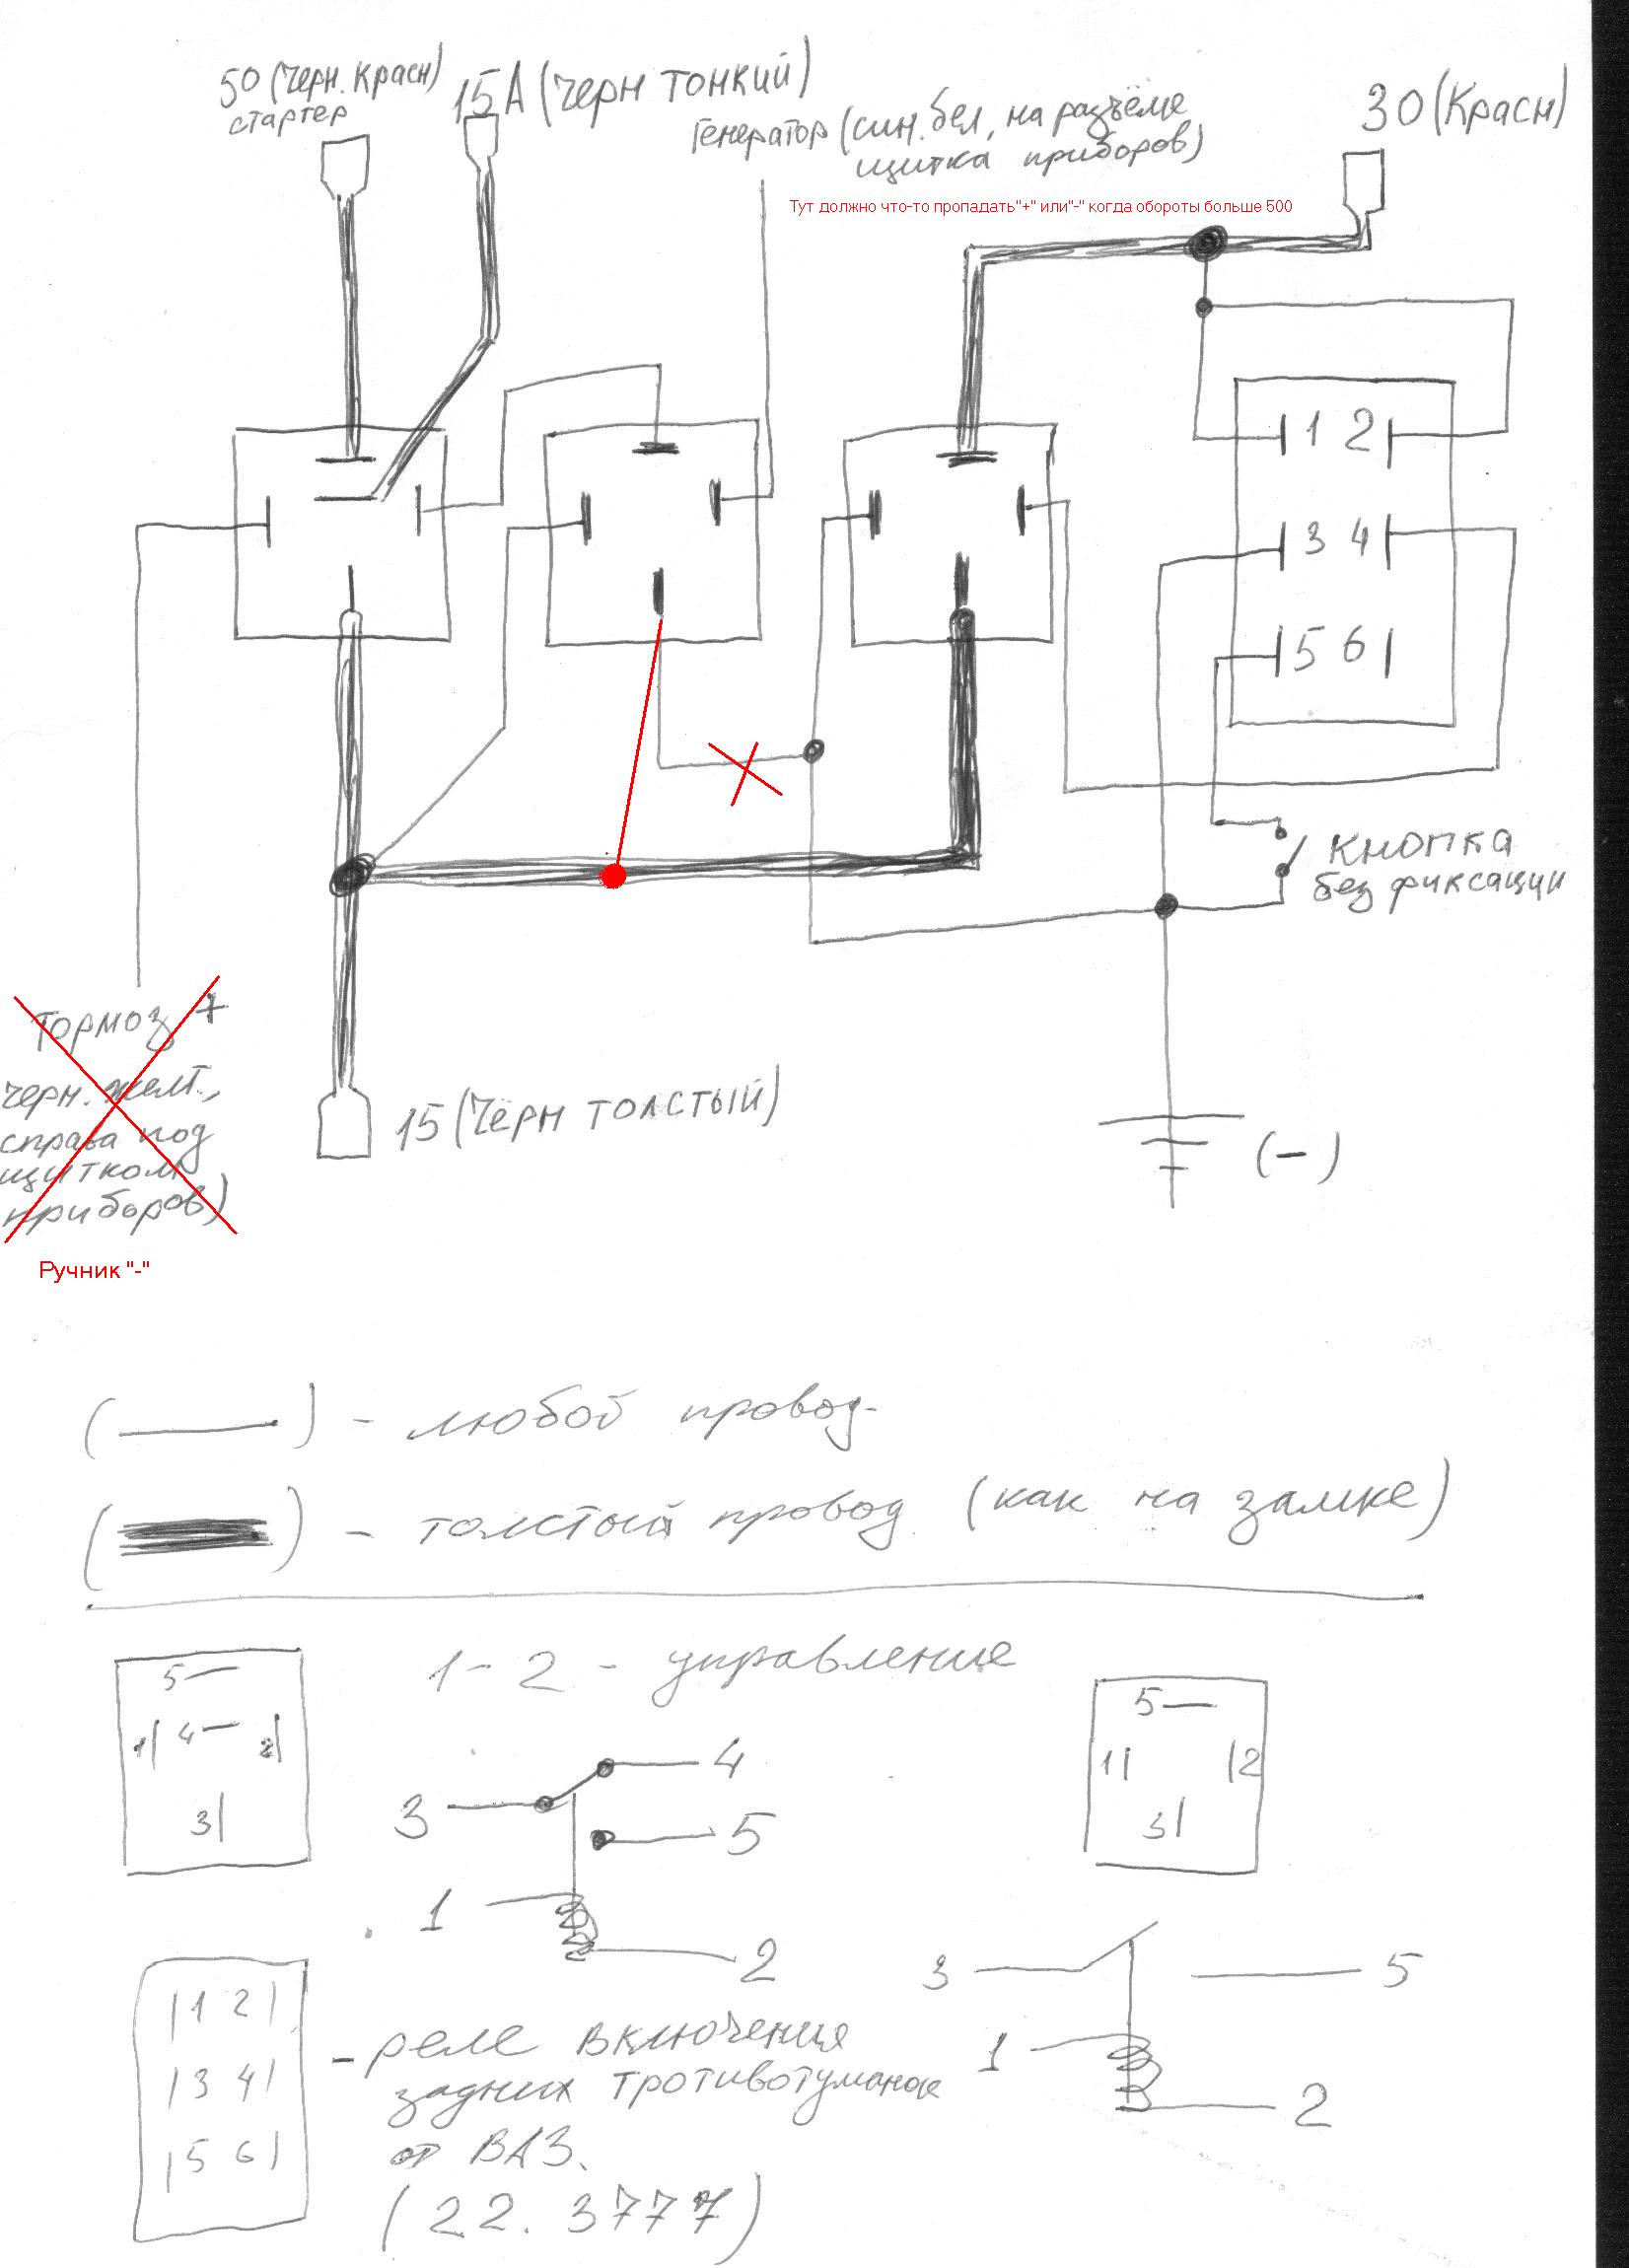 50 (Черн. Красн)
стартер
15А (Черн тонкий)
Генератор (син. бел, на разъёме
щитка приборов)
30 (Красн)
Тут должно что-то пропадать"+" или"-" когда обороты больше 500
1 2
3 4
5 6
Кнопка
без фиксации
Тормоз +
черн. желт.,
справа под
щитком
приборов)
Ручник "-"
15 (Чёрн толстый)
(-)
( ) - любой провод.
( ) - толстый провод. (как на замке)
1-2 - управление
5
1 4 2
3
3
4
5
1
2
5
1 2
3
3
5
1
2
1 2
3 4
5 6
- реле включения
задних тротивотуманок
от ВАЗ.
(22. 3777)